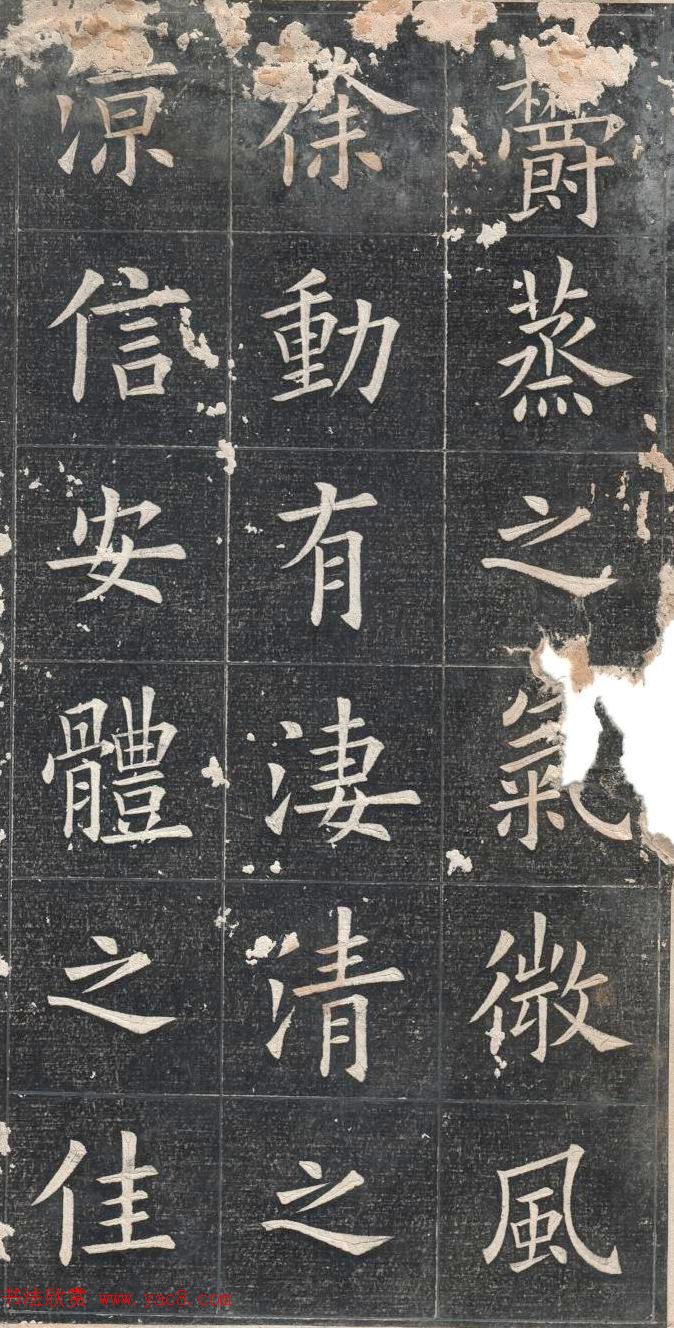 欎蒸之氣微風
徐動有淒清之
凉信安體之佳
书法欣赏 www.yac8.com